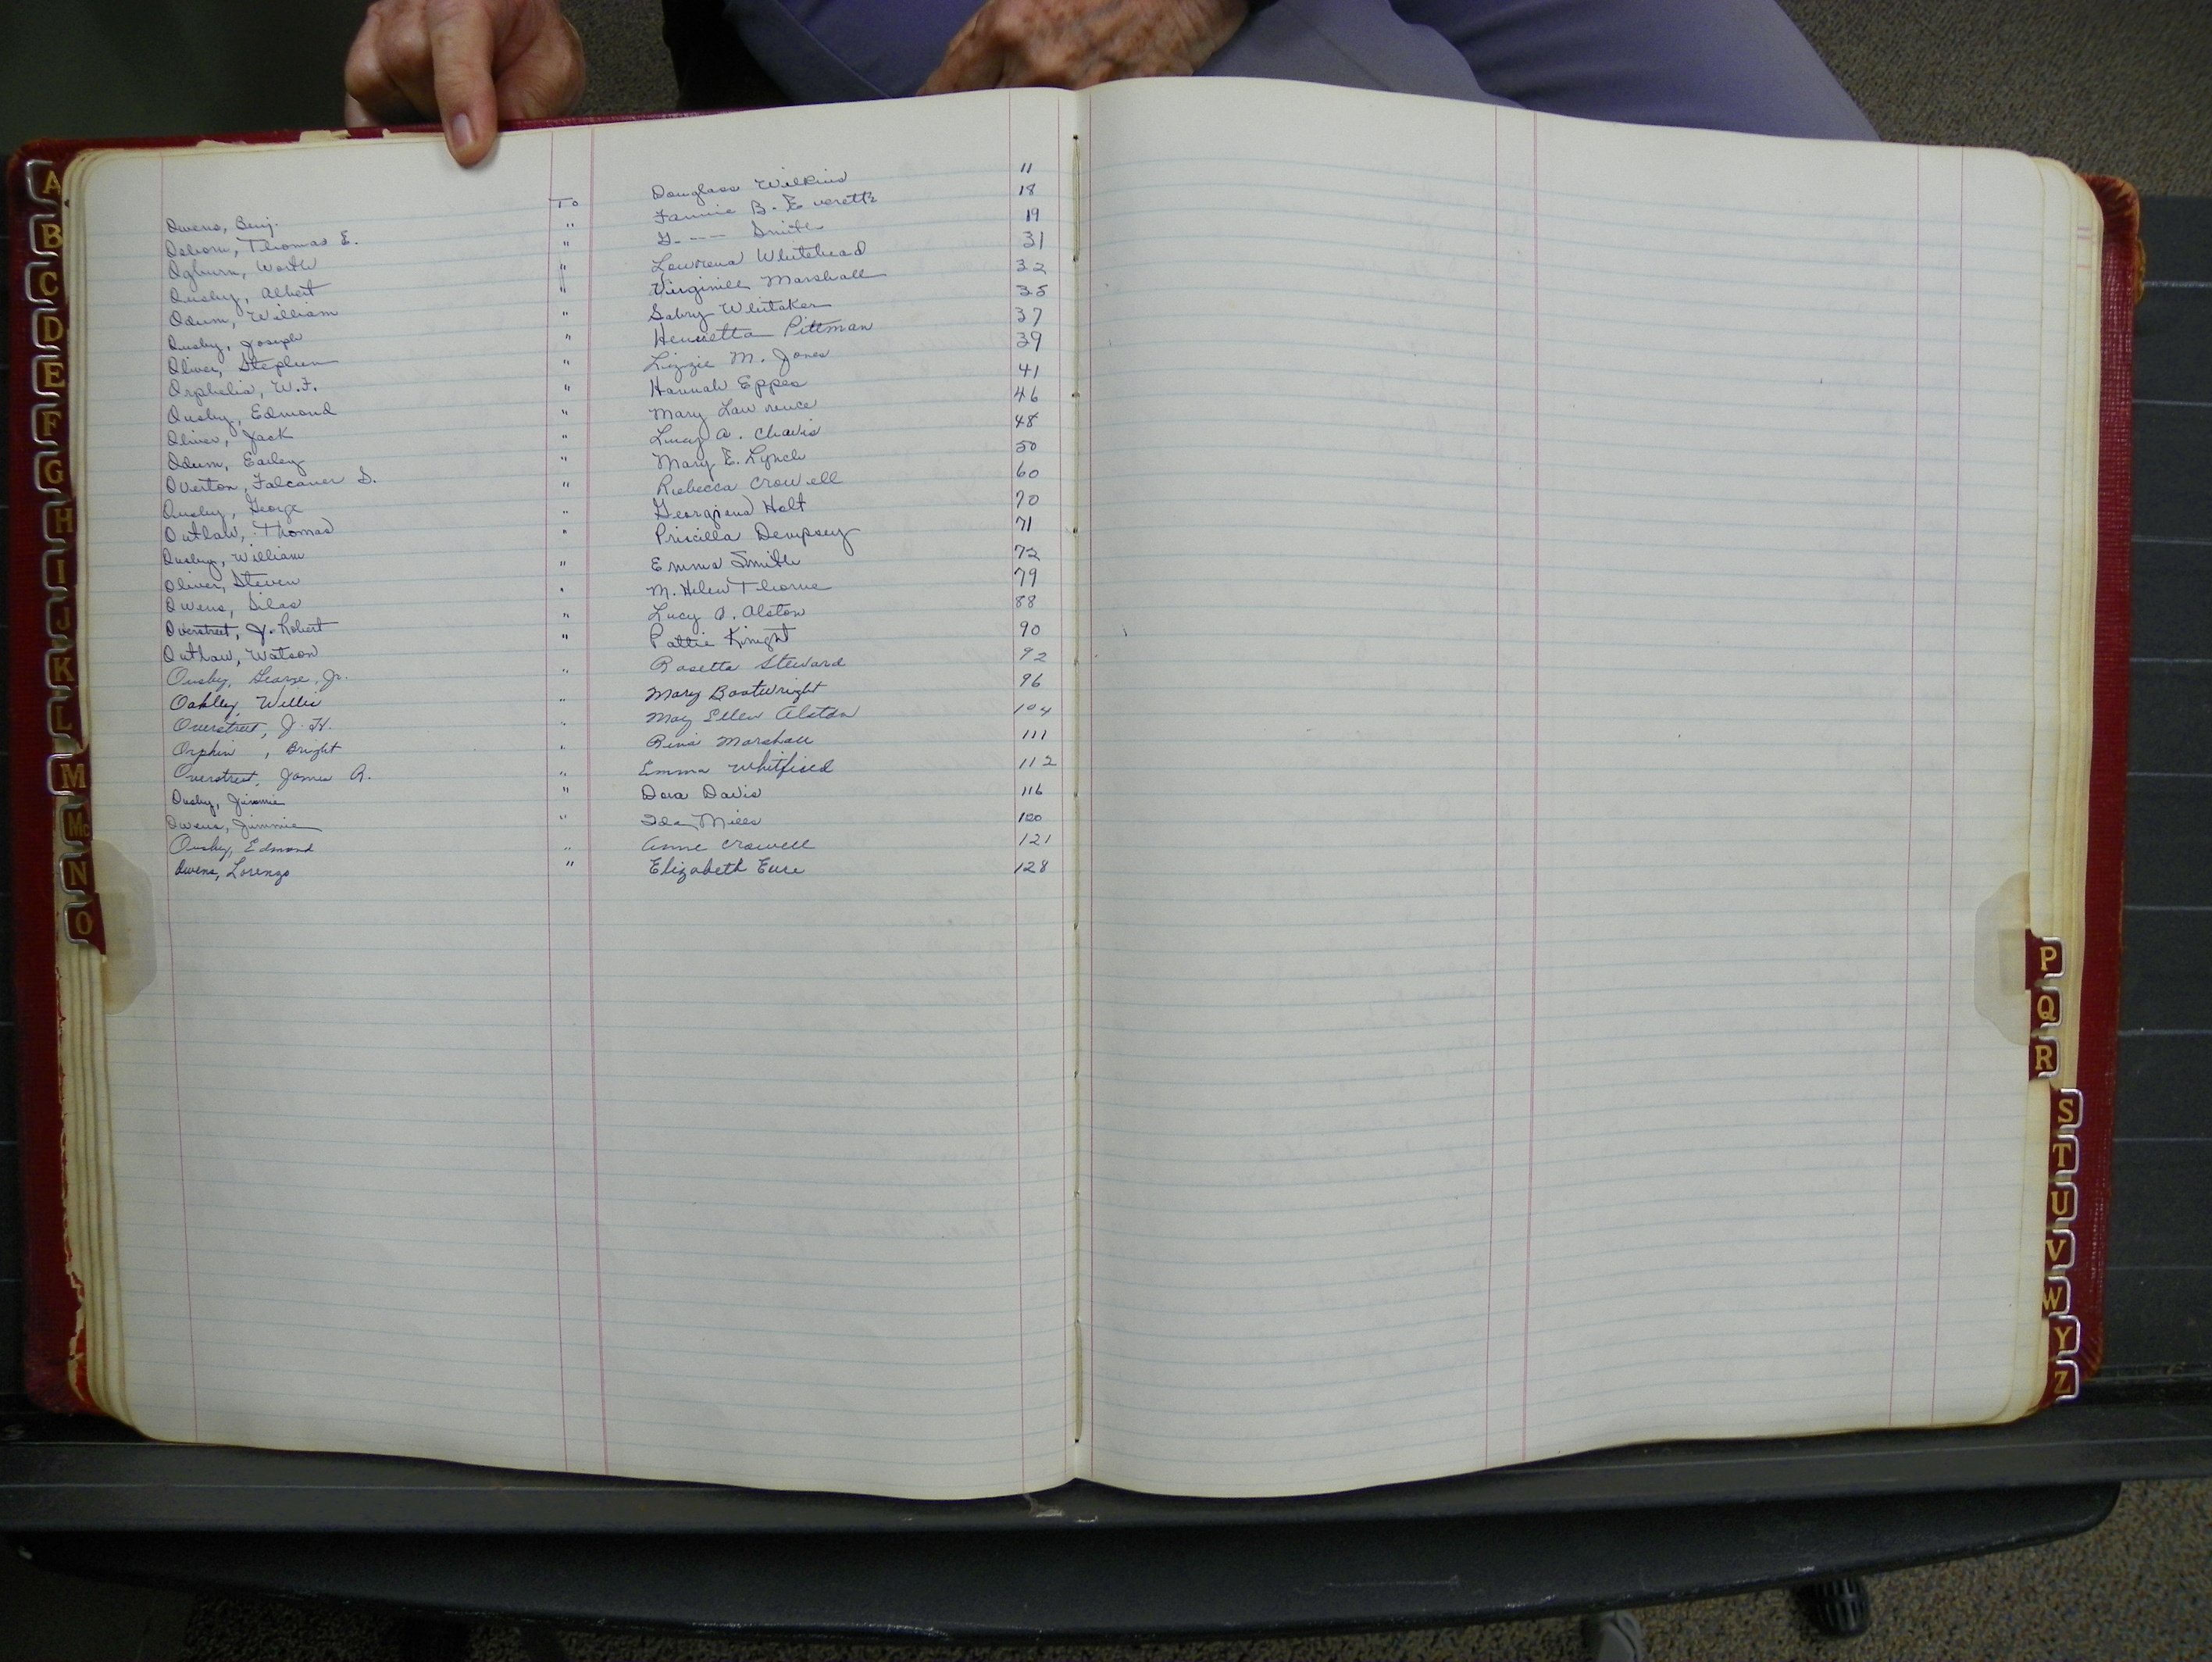 A
B
C
D
E
F
G
H
I
J
K
L
M
Mc
N
O
Owens, Benj. To Douglass Wilkins 11
Osborn, Thomas E. " Fannie B. Everette 18
Ogburn, Worth " G---- Smith 19
Ousby, Albert " Lourena Whitehead 31
Odum, William " Virginia Marshall 32
Ousby, Joseph " Whitaker 35
Oliver, Stephen " Henrietta Pittman 37
Orphelia, W.F. " Lizzie M. Jones 39
Ousby, Edmond " Hannah Eppes 41
Oliver, Jack " Mary Lawrence 46
Odum, Earley " Lucy A. Chavis 48
Overton, Falconer S. " Mary E. Lynch 50
Ousby, George " Rebecca Crowell 60
Outlaw, Thomas " Georgiena Holt 70
Ousby, William " Priscilla Dempsey 71
Oliver, Steven " Emma Smith 72
Owens, Silas " M. Helen Thorne 79
Overstreet, J. Robert " Lucy A. Alston 88
Outlaw, Watson " Pattie Knight 90
Ousby, George, Jr. " Rosetta Steward 92
Oakley, Willie " Mary Boatwright 96
Overstreet, J. H. " May Ellen Alston 104
Orphin, Bright " Rena Marshall 111
Overstreet, James R. " Emma Whitfield 112
Ousby, Jimmie " Dora Davis 116
Owens, Jimmie " Ida Mills 120
Ousby, Edmond " Anne Crowell 121
Owens, Lorenzo " Elizabeth Eure 128
P
Q
R
S
T
U
V
W
Y
Z